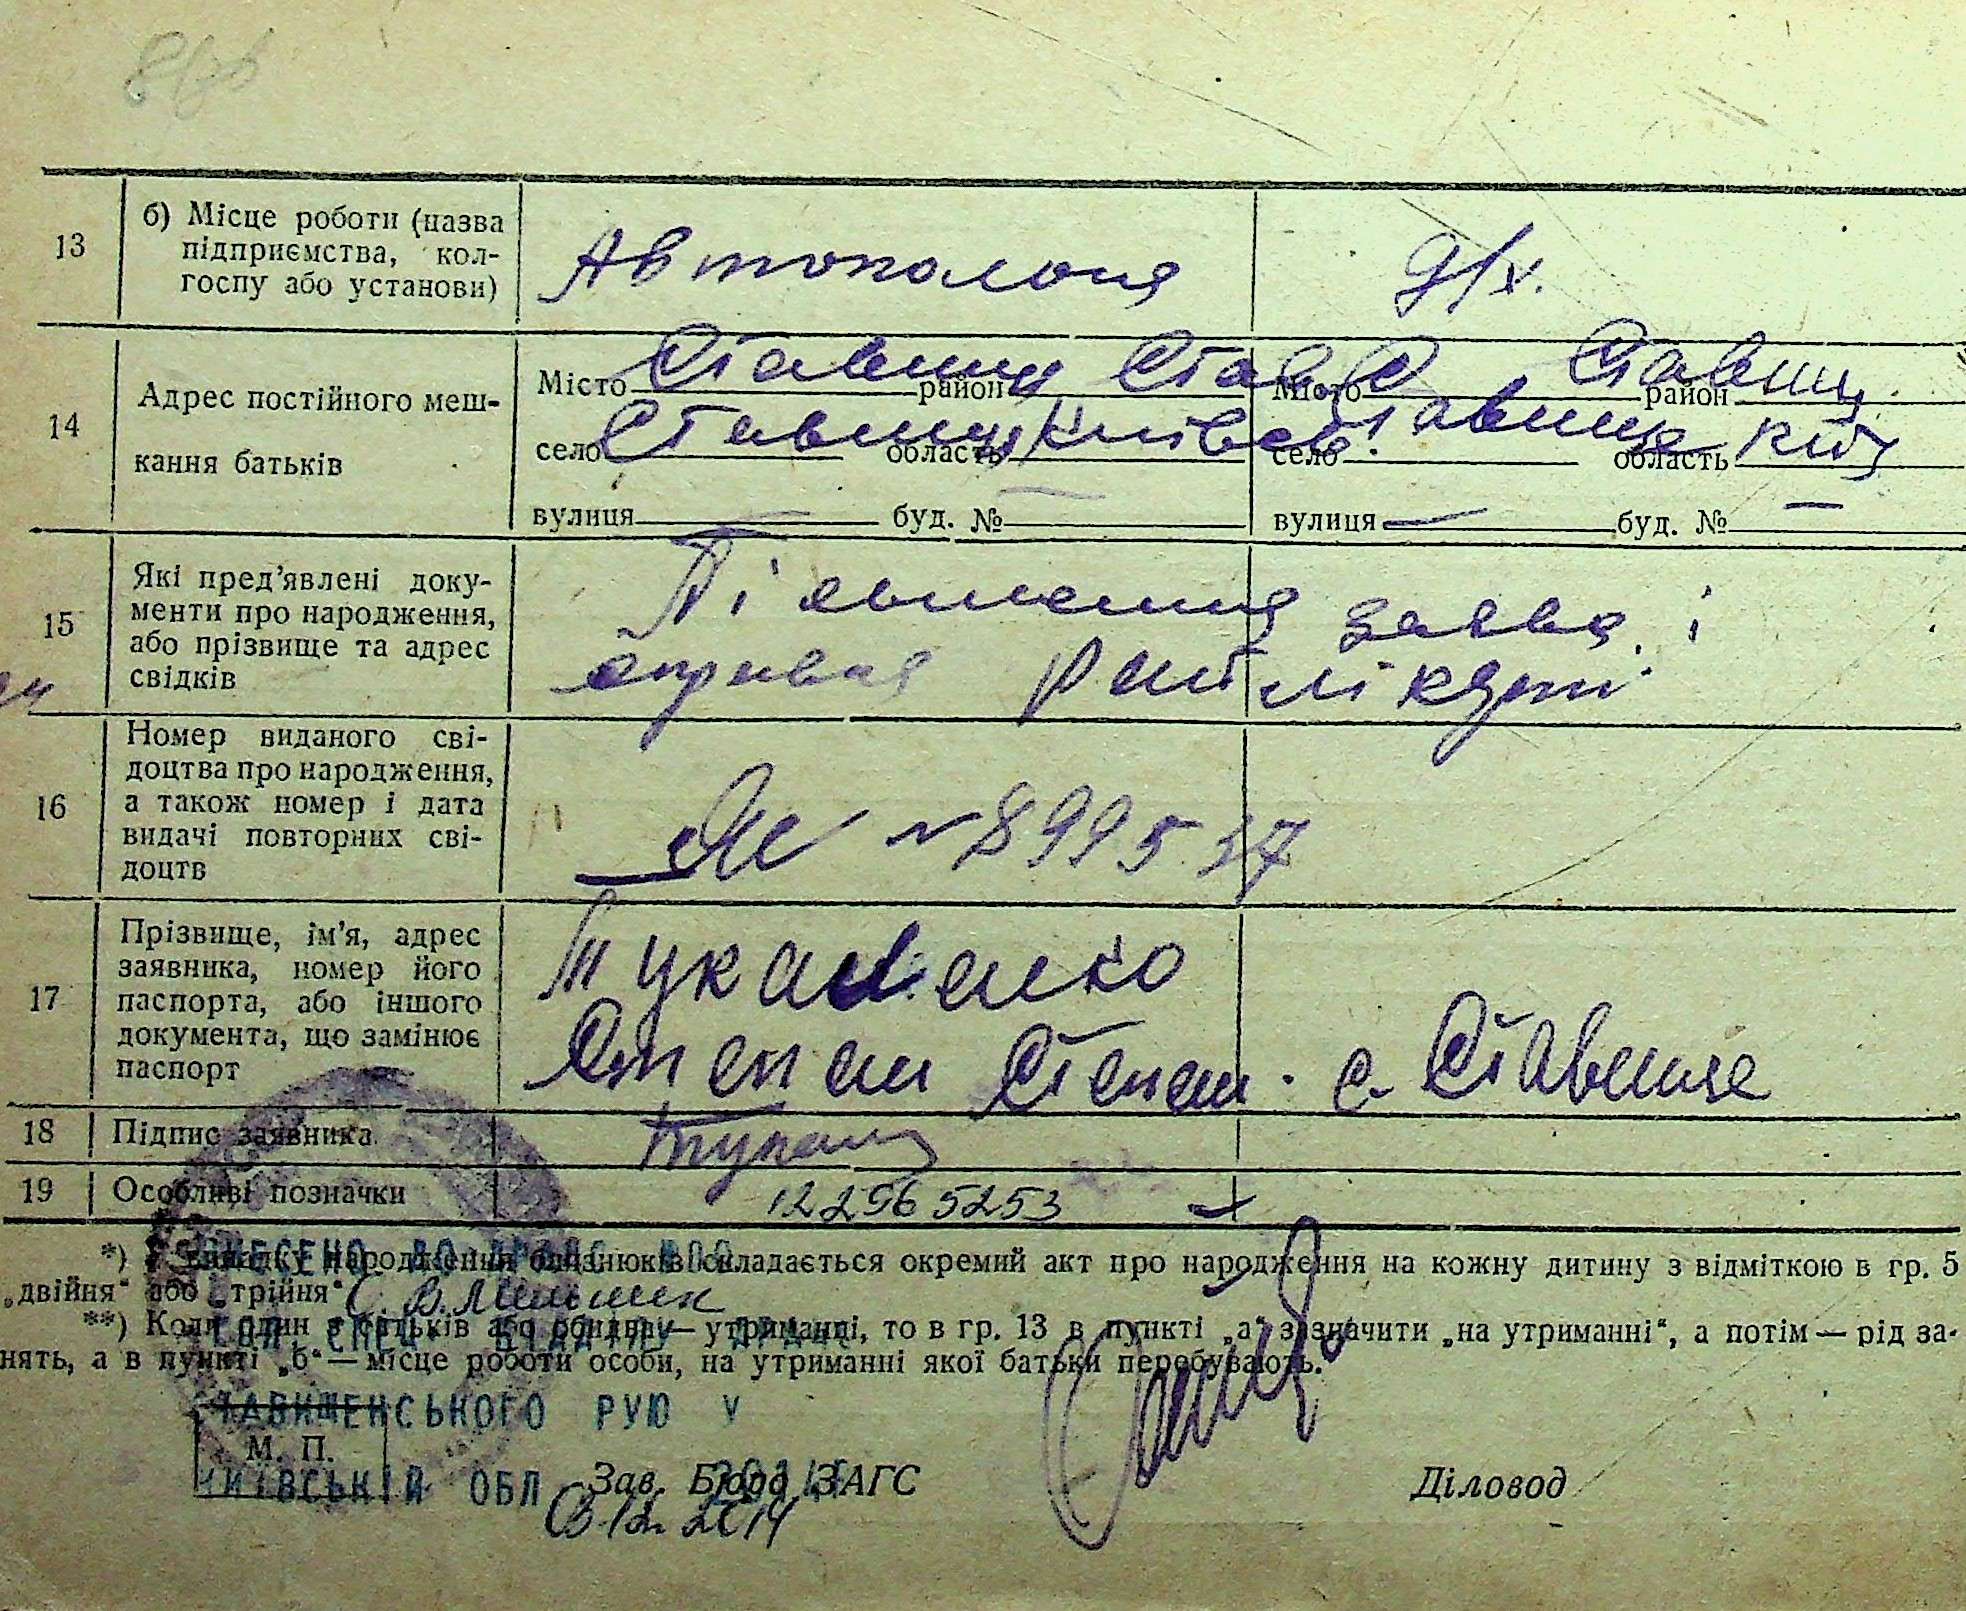 13
б) Місце роботи (назва
підприємства, кол-
госпу або установи)
Автоколона
д/х.
14
Адрес постійного меш-
кання батьків
Місто Ставищ район Став
село Ставище область Київськ
вулиця — буд. № —
Місто С район Ставищ
село Ставище область Київ
вулиця — буд. № —
15
Які пред'явлені доку-
менти про народження,
або прізвище та адрес
свідків
заява і
16
Номер виданого сві-
доцтва про народження,
а також номер і дата
видачі повторних сві-
доцтв
17
Прізвище, ім'я, адрес
заявника, номер його
паспорта, або іншого
документа, що замінює
паспорт
Степан Степан. с. Ставище
18
Підпис заявника
19
Особливі позначки
122965253
*) У випадку народження близнюків складається окремий акт про народження на кожну дитину з відміткою в гр. 5
„двійня“ або „трійня“
**) Коли один з батьків або обидва — утриманці, то в гр. 13 в пункті „а“ зазначити „на утриманні“, а потім — рід за-
нять, а в пункті „б“ — місце роботи особи, на утриманні якої батьки перебувають.
СТАВИЩЕНСЬКОГО РУЮ У
М. П.
КИЇВСЬКІЙ ОБЛ
Зав. Бюро ЗАГС
Діловод
12. 2014